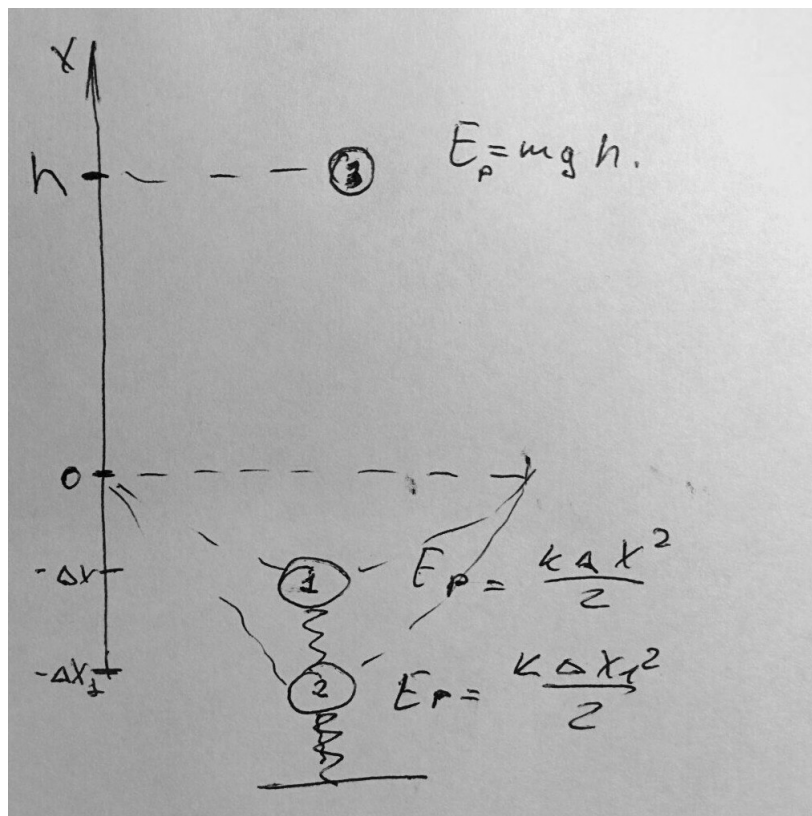 x
h
3
E_p = mgh.
0
-Δx
1
E_p = kΔx²/2
-Δx₁
2
E_p = kΔx₁²/2